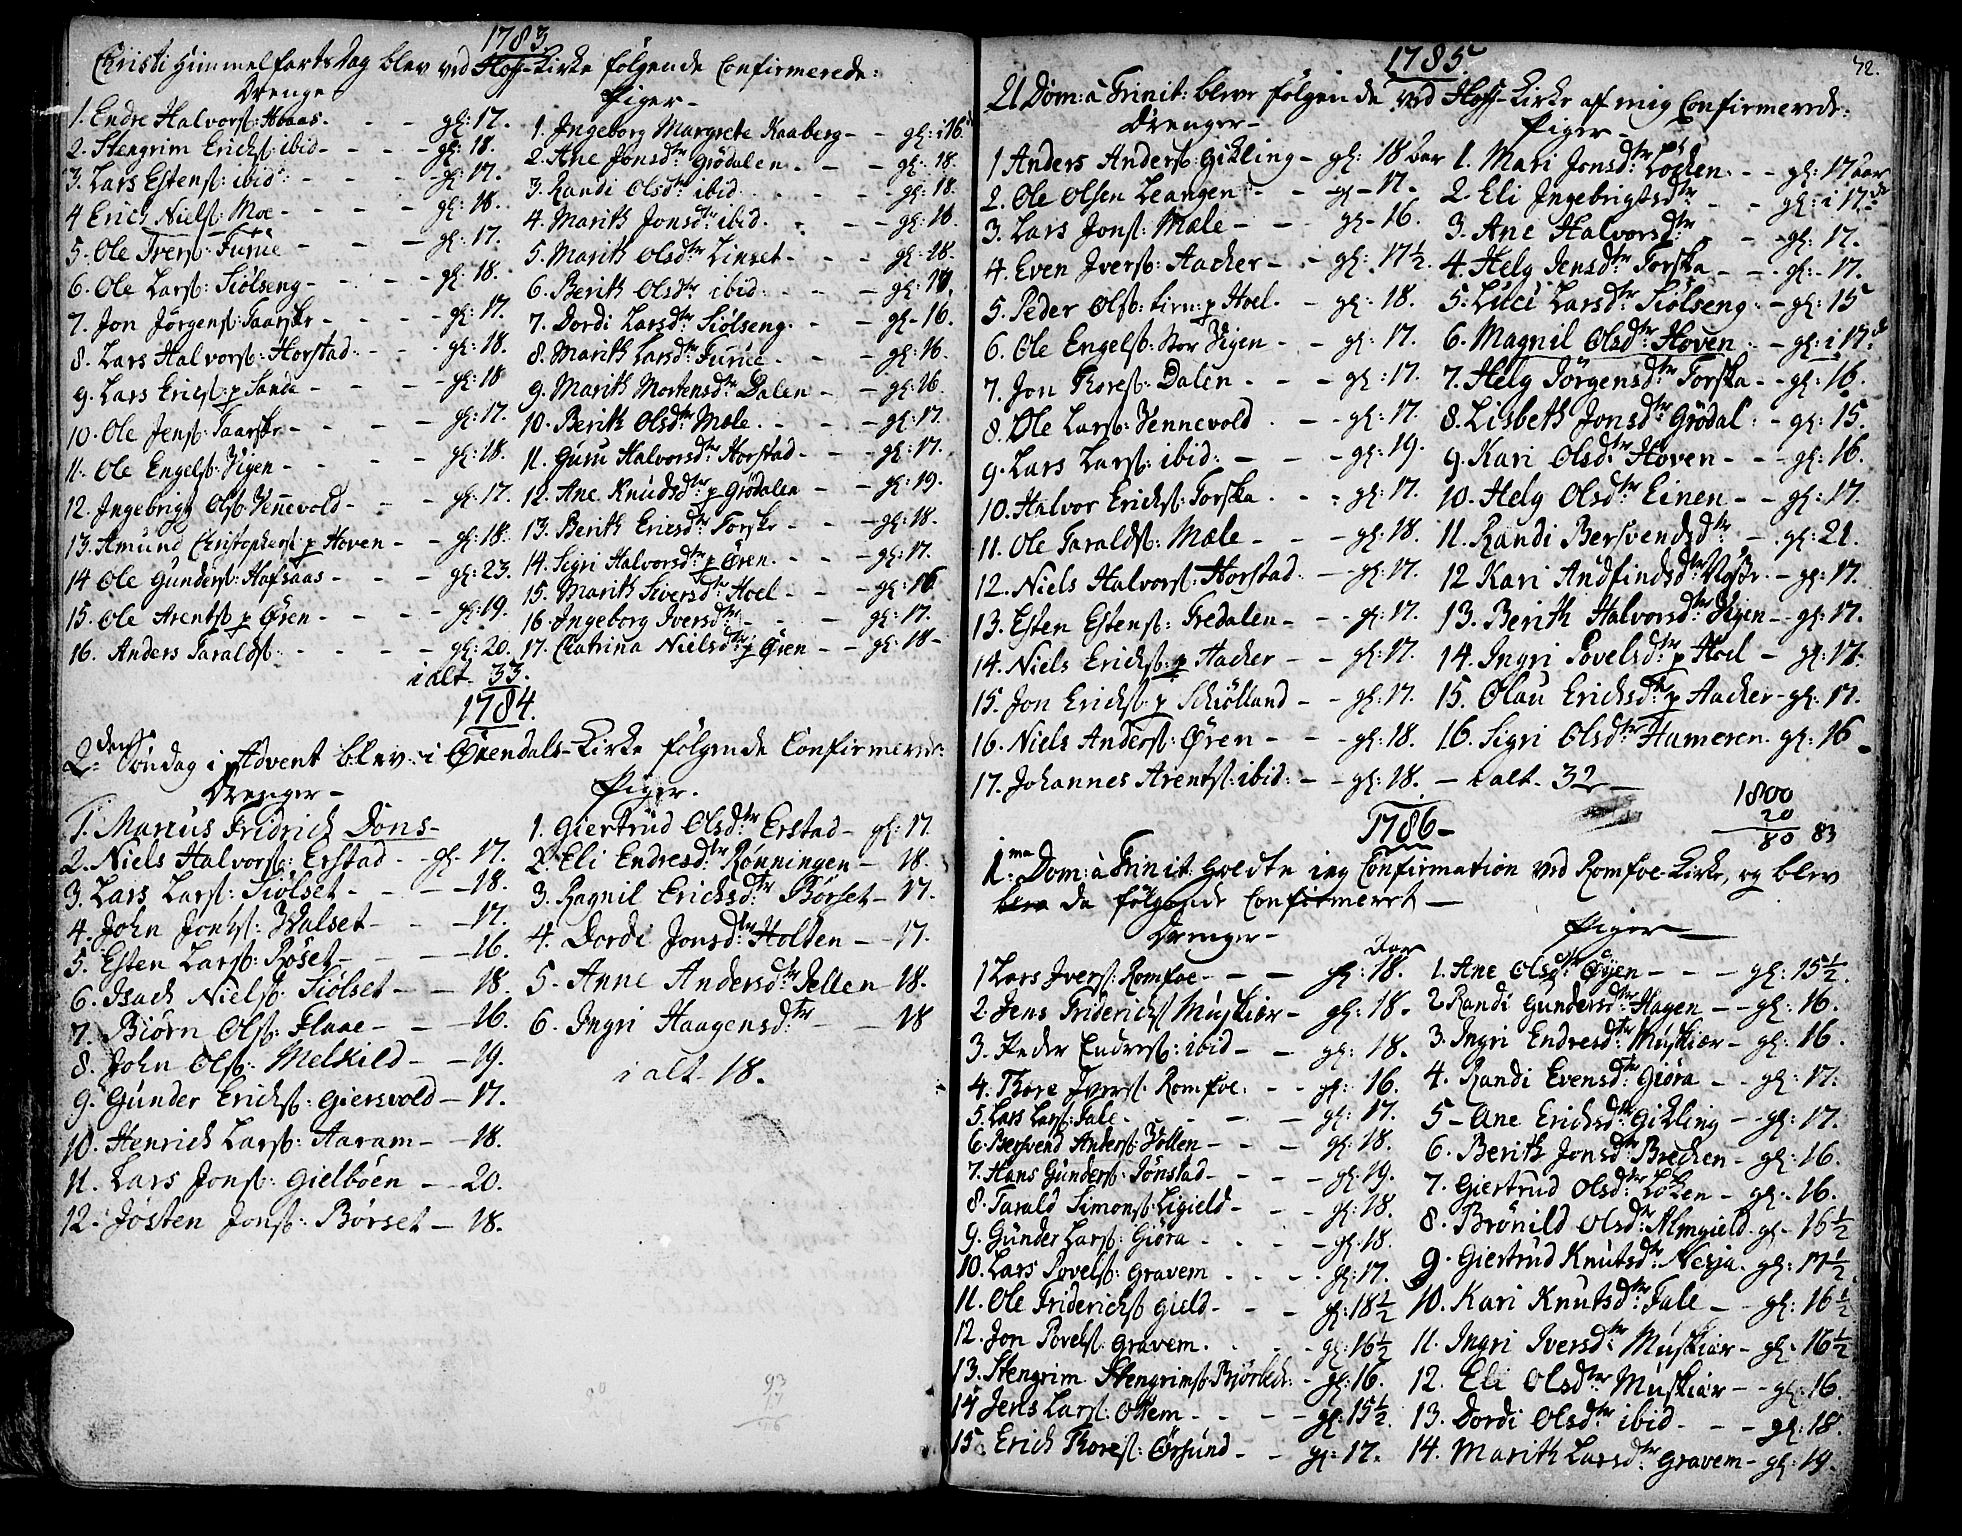 1783
Christi Himmelfarts Dag blev ved Hoff-Kirke følgende Confirmerede:
Drenge
1. Endre Halvorsß: Hoaas. - - - gl: 17.
2. Stengrim Erichsß: ibid - - - gl: 18.
3. Lars Estensß: ibid: - - - gl: 17.
4 Erich Nielsß: Moe - - - gl: 18.
5. Ole Iversß: Furue - - - gl: 17.
6. Ole Larsß: Siølseng - - - gl: 18.
7. Jon Jørgensß: Faarskr - - - gl: 17.
8. Lars Halvorsß: Horstad: - - gl: 18.
9. Lars Ericsß: p Sande - - - gl: 18
10. Ole Jensß: Faarskr - - - gl: 17.
11. Ole Engelsß: Vigen - - - gl: 18.
12. Ingebrigt Olsß: Vennevold - - gl: 17.
13. Amund Christophersß p Hoven - - gl: 18.
14 Ole Gundersß: Hafsaas - - - gl: 23.
15. Ole Arentsß p Ören - - - gl: 19.
16. Anders Taraldsß: - - - gl: 20.
Piger -
1. Ingeborg Margrete Kaaberg - - gl: i 16.
2. Ane Jonsdtr: Grødalen - - - gl: 18.
3. Randi Olsdtr: ibid. - - - gl: 18.
4. Marith Jonsdtr: ibid. - - gl: 18
5. Marith Olsdtr: Linset - - - gl: 18.
6. Berith Olsdtr: ibid: - - - gl: 18.
7. Dordi Larsdtr: Siølseng. - - gl: 16.
8. Marith Larsdtr: Furue. - - gl: 16.
9. Marith Mortensdtr: Dalen - - gl: 16.
10. Berith Olsdtr: Mæle. - - - gl: 17.
11. Guru Halvorsdtr: Horstad - - gl: 17.
12. Ane Knudsdtr: p Grødalen - - gl: 19.
13. Berith Ericsdtr: Forskr - - - gl: 18.
14. Sigri Halvorsdtr: p Ören. - - - gl: 17.
15. Marith Siversdtr: Hoel - - - gl: 16
16. Ingeborg Iversdtr: - - - gl: 17.
17. Chatrina Nielsdtr: p Ören - - gl: 18 -
ialt 33.
1784.
2den Søndag i Advent blev i Örendals-Kirke følgende Confirmerede:
Drenger -
1. Marcus Fridrich Dons -
2. Niels Halvorsß: Erstad - - gl. 17.
3. Lars Larsß: Siölset - - - 18.
4. John Jonsß: Walset - - - 17.
5. Esten Larsß: Röset - - - 16.
6. Isach Nielsß: Siölset - - 18.
7. Biörn Olsß: Flaae - - - 16.
8. John Olsß: Melkild - - 19.
9. Gunder Erichsß: Giersvold - 17.
10. Henrich Larsß: Aaram - - 18.
11. Lars Jonsß: Gielböen - - 20.
12. Josten Jonsß: Börset - 18.
Piger.
1. Giertrud Olsdtr: Erstad - gl: 17.
2. Eli Endresdtr: Rønningen - 18.
3. Ragnil Erichsdtr: Börset - 17.
4. Dordi Jonsdtr: Holten - - 17.
5. Anne Andersdtr: Jellen 18.
6. Ingri Haagensdtr: - - 18
i alt 18.
93
1785
72.
21 Dom: à Trinit: bleve følgende ved Hoff-Kirke af mig Confirmerede:
Drenger -
1 Anders Andersß: Gikling - gl: 18 Aar
2. Ole Olsen Leangen - - gl - 17.
3. Lars Jonsß: Mæle - - - gl - 16.
4. Even Iversß: Aacker - - gl: 17½.
5. Peder Olsß: p Hoel. - gl: 18.
6. Ole Engelsß: Stor Vigen - - gl: 17.
7. Jon Thoresß: Dalen. - - gl: 17.
8. Ole Larsß: Vennevold. - - gl: 17.
9. Lars Larsß: ibid: - - - gl: 19.
10. Halvor Erichsß: Torska. - - gl: 17.
11. Ole Taraldsß: Mæle - - - gl: 18.
12. Niels Halvorsß: Horstad. - - gl: 17.
13. Esten Estensß: Fredalen - - gl: 17.
14. Niels Erichsß: p Aacker - - gl: 17.
15. Jon Erichsß: p Schiølland - - gl: 17.
16. Niels Andersß: Øren - - - gl: 18.
17. Johannes Arentsß: ibid: - - gl: 18. - ialt - 32 -
Piger -
1. Mari Jonsdtr: Løcken - - gl: 17 Aar
2. Eli Ingebrigtsdtr: - - gl: i 17de
3. Ane Halvorsdtr: - - gl: 17.
4. Helg Jensdtr: Torska - - gl: - 17.
5. Luci Larsdtr: Siølseng. - gl: 15
6. Magnil Olsdtr: Hoven - gl: i 17de
7. Helg Jørgensdtr: Torska - - gl: 16.
8. Lisbeth Jonsdtr: Grødal. - gl: 15.
9. Kari Olsdtr: Hoven - - gl: 16.
10. Helg Olsdtr: Einen - - gl: 17.
11. Randi Bersvendsdtr: - gl: 21.
12 Kari Andfindsdtr: - gl: 17.
13. Berith Halvorsdtr: Vigen - - gl: 17.
14. Ingri Povelsdtr: p Hoel - gl: 17.
15. Olau Erichsdtr: p Aacker - gl: 17.
16. Sigri Olsdtr: Hameren. gl: 16.
1800
20
80 83
1786 -
1ma Dom: à Trinit: holdte jeg Confirmation ved Romfoe-Kirke, og blev
da følgende Confirmeret -
Drenger -
1 Lars Iversß: Romfoe - - - gl: 18. Aar
2. Jens Friderichsß Muskiær - gl: 18.
3. Peder Endresß: ibid - - gl: 18.
4. Thore Iversß: Romfoe: - - gl: 16.
5. Lars Larsß: Fale - - - gl: 17.
6. Bersvend Andersß: Vollen - - gl: 18.
7. Hans Gundersß: Jønstad - - - gl: 19.
8. Tarald Simonsß: Ligield - - gl: 18.
9. Gunder Larsß: Giøra - - - gl: 18.
10. Lars Povelsß: Gravem - - - gl: 17.
11. Ole Friderichsß Gield - - - gl: 18½
12. Jon Povelsß: Gravem. - - - gl: 16½
13. Stengrim Stengrimsß: Bjørbech: - gl: 16.
14 Jens Larsß: Ottem - - - gl: 15½
15. Erich Thoresß: Ørsund - - gl: 17.
Piger -
1. Ane Olsdtr: Öyen - - - gl: 15½
2 Randi Gundersdtr: Hagen - - gl: 16.
3. Ingri Endresdtr: Muskiær - gl: 16.
4. Randi Evensdtr: Giøra - - gl: 17.
5 - Ane Erichsdtr: Gikling - - gl: 17.
6. Berith Jonsdtr: Brecken - gl: 16.
7. Giertrud Olsdtr: Løken - gl: 16.
8. Brönild Olsdtr: Almgield. gl - 16½
9. Giertrud Knutsdtr: Nesja. gl: 17½
10. Kari Knutsdtr: Fale - - gl: 16½
11. Ingri Iversdtr: Muskiær - gl. 16½
12. Eli Olsdtr: Muskiær - - gl: 16.
13. Dordi Olsdtr: ibid - - - gl: 18.
14. Marith Larsdtr: Gravem - gl: 19.